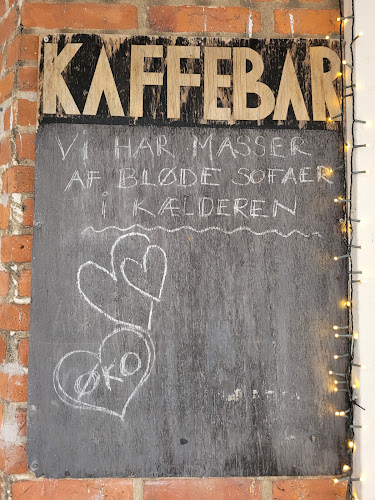 KAFFEBAR
VI HAR MASSER
AF BLØDE SOFAER
i KÆLDEREN
ØKO